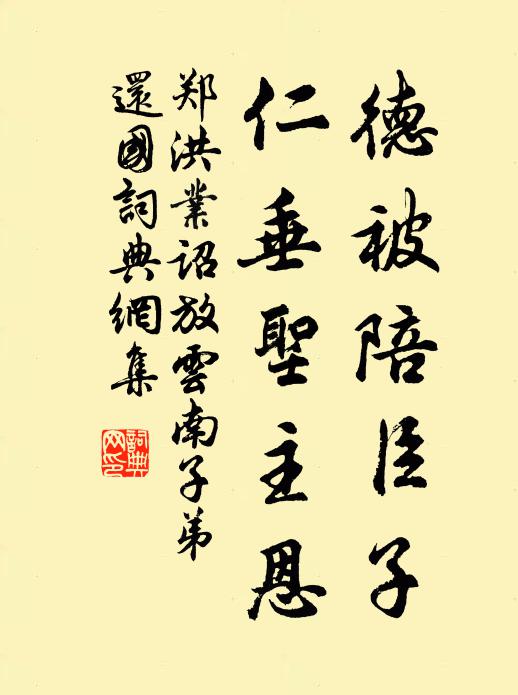 德被陪臣子
仁垂聖主恩
郑洪業詔放雲南子弟
還國詞典網集
詞典網印